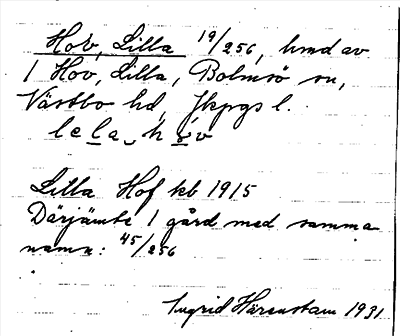 Hov, Lilla 19/256, hmd av
1 Hov, Lilla, Bolmsö sn,
Västbo hd, Jkpgs l.
lela hov
Lilla Hof kb 1915
Därjämte 1 gård med samma
namn: 45/256
Ingrid Härenstam 1931